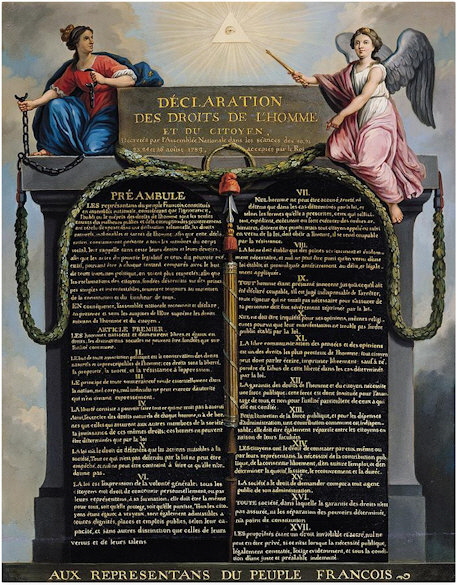 DÉCLARATION
DES DROITS DE L'HOMME
ET DU CITOYEN,
Décrétés par l'Assemblée Nationale dans les séances des 20, 21
23, 24 et 26 août 1789, acceptés par le Roi
PRÉAMBULE
LES représentans du peuple François, constitués
en assemblée nationale, considérant que l'ignorance,
l'oubli ou le mépris des droits de l'homme sont les seules
causes des malheurs publics et de la corruption des gouvernemens
ont résolu d'exposer dans une déclaration solemnelle, les droits
naturels, inaliénables et sacrés de l'homme, afin que cette déclaration,
constamment présente à tous les membres du corps
social, leur rappelle sans cesse leurs droits et leurs devoirs,
afin que les actes du pouvoir législatif et ceux du pouvoir exécutif,
pouvant être à chaque instant comparés avec le but
de toute institution politique, en soient plus respectés; afin que
les réclamations des citoyens, fondées désormais sur des principes
simples et incontestables, tournent toujours au maintien
de la constitution et du bonheur de tous.
EN conséquence, l'assemblée nationale reconnoît et déclare,
en présence et sous les auspices de l'Être suprême les droits
suivans de l'homme et du citoyen.
ARTICLE PREMIER
LES hommes naissent et demeurent libres et égaux en
droits, les distinctions sociales ne peuvent être fondées que sur
l'utilité commune.
II.
LE but de toute association politique est la conservation des droits
naturels et imprescriptibles de l'homme; ces droits sont la liberté,
la propriété, la sureté, et la résistance à l'oppression.
III.
LE principe de toute souveraineté réside essentiellement dans
la nation, nul corps, nul individu ne peut exercer d'autorité
qui n'en émane expressément.
IV.
LA liberté consiste à pouvoir faire tout ce qui ne nuit pas à autrui
Ainsi, l'exercice des droits naturels de chaque homme, n'a de bornes
que celles qui assurent aux autres membres de la société
la jouissance de ces mêmes droits; ces bornes ne peuvent
être déterminées que par la loi
V.
LA loi n'a le droit de défendre que les actions nuisibles à la
société. Tout ce qui n'est pas défendu par la loi ne peut être
empêché, et nul ne peut être contraint à faire ce qu'elle n'ordonne
pas.
VI.
LA loi est l'expression de la volonté générale; tous les
citoyens ont droit de concourir personnellement, ou par
leurs représentans, à sa formation; elle doit être la même
pour tous, soit qu'elle protège, soit qu'elle punisse, Tous les citoyens
étant égaux à ses yeux, sont également admissibles à
toutes dignités, places et emplois publics, selon leur capacité,
et sans autres distinction que celles de leurs
vertus et de leurs talens
VII.
NUL homme ne peut être accusé, arrêté ni
détenu que dans les cas déterminés par la loi, et
selon les formes qu'elle a prescrites, ceux qui sollicitent,
expédient, exécutent ou font exécuter des ordres arbitraires,
doivent être punis; mais tout citoyen appelé ou saisi
en vertu de la loi, doit obéir à l'instant, il se rend coupable
par la résistance.
VIII.
LA loi ne doit établir que des peines strictement et évidemment
nécessaires, et nul ne peut être puni qu'en vertu d'une
loi établie et promulguée antérieurement au délit, et légalement
appliquée.
IX.
TOUT homme étant présumé innocent jusqu'à ce qu'il ait
été déclaré coupable, s'il est jugé indispensable de l'arrêter,
toute rigueur qui ne seroit pas nécessaire pour s'assurer de
sa personne doit être sévèrement réprimée par la loi.
X.
NUL ne doit être inquiété pour ses opinions, mêmes religieuses
pourvu que leur manifestation ne trouble pas l'ordre
public établi par la loi.
XI.
LA libre communication des pensées et des opinions
est un des droits les plus précieux de l'homme; tout citoyen
peut donc parler, écrire, imprimer librement: sauf à répondre
de l'abus de cette liberté dans les cas déterminés
par la loi.
XII.
LA garantie des droits de l'homme et du citoyen nécessite
une force publique; cette force est donc instituée pour l'avantage
de tous, et non pour l'utilité particulière de ceux à qui
elle est confiée.
XIII.
POUR l'entretien de la force publique, et pour les dépenses
d'administration, une contribution commune est indispensable;
elle doit être également répartie entre les citoyens en
raison de leurs facultés.
XIV.
LES citoyens ont le droit de constater par eux même ou
par leurs représentans, la nécessité de la contribution publique,
de la consentir librement, d'en suivre l'emploi, et d'en
déterminer la quotité, l'assiette, le recouvrement et la durée.
XV.
LA société a le droit de demander compte à tout agent
public de son administration.
XVI.
TOUTE société, dans laquelle la garantie des droits n'est
pas assurée, ni la séparation des pouvoirs déterminée,
n'a point de constitution
XVII.
LES propriétés étant un droit inviolable et sacré, nul ne
peut en être privé, si ce n'est lorsque la nécessité publique,
légalement constatée, l'exige évidemment, et sous la condition
d'une juste et préalable indemnité.
AUX REPRESENTANS DU PEUPLE FRANCOIS.